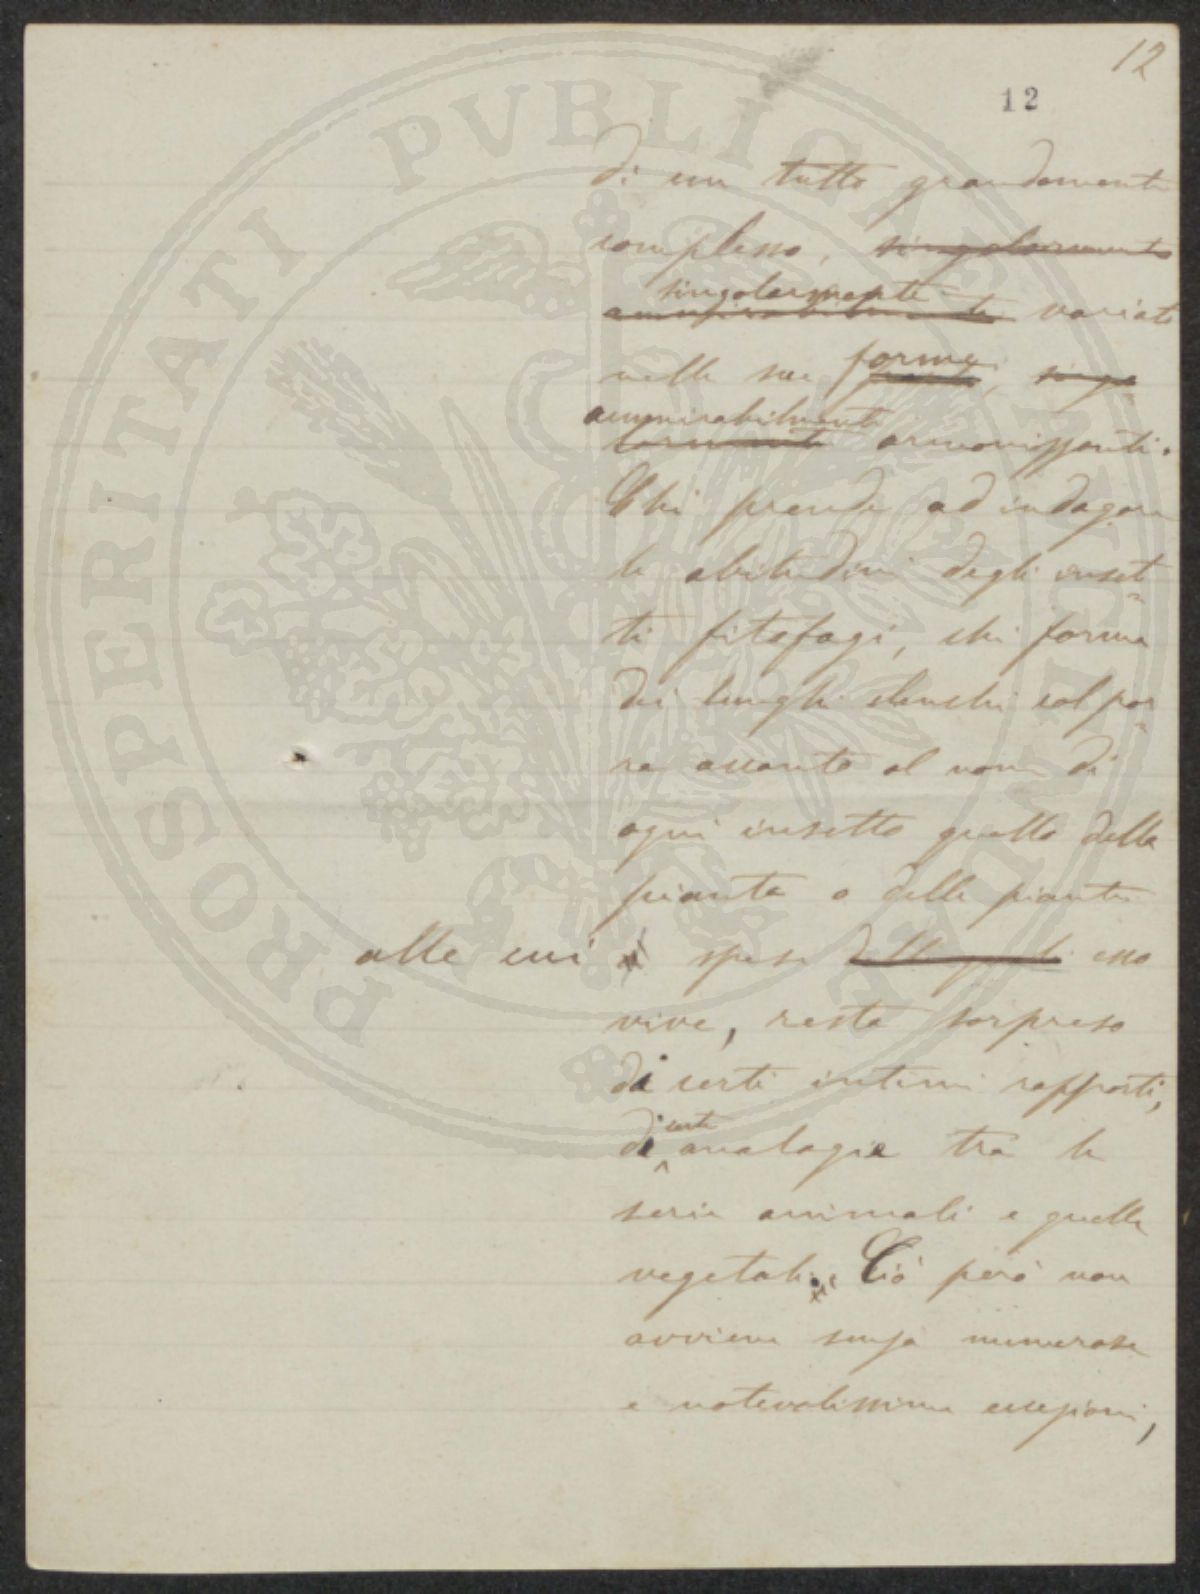 12
12
di un tutto grandemente
complesso, singolarmente
singolarmente
ammirabilmente variato
nelle sue forme, singo
ammirabilmente
larmente armonizzanti.
Chi prende ad indagare
le abitudini degli inset-
ti fitofagi, chi forma
dei lunghi elenchi col por-
re accanto al nome di
ogni insetto quello della
pianta o delle piante
alle cui spese delle quali esso
vive, resta sorpreso
di certi intimi rapporti,
certe
di analogie tra le
serie animali e quelle
vegetali. Ciò però non
avviene senza numerose
e notevolissime eccezioni,
PROSPERITATI PVBLICAE